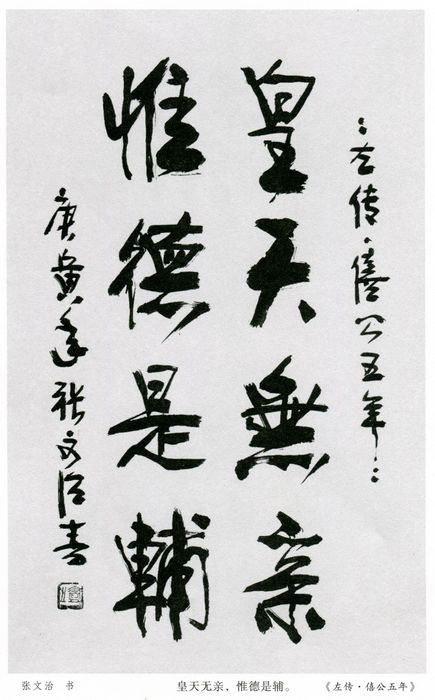 ：左傳·僖公五年：
皇天無亲
惟德是輔
庚寅年張文治書
张文治 书 皇天无亲，惟德是辅。 《左传·僖公五年》